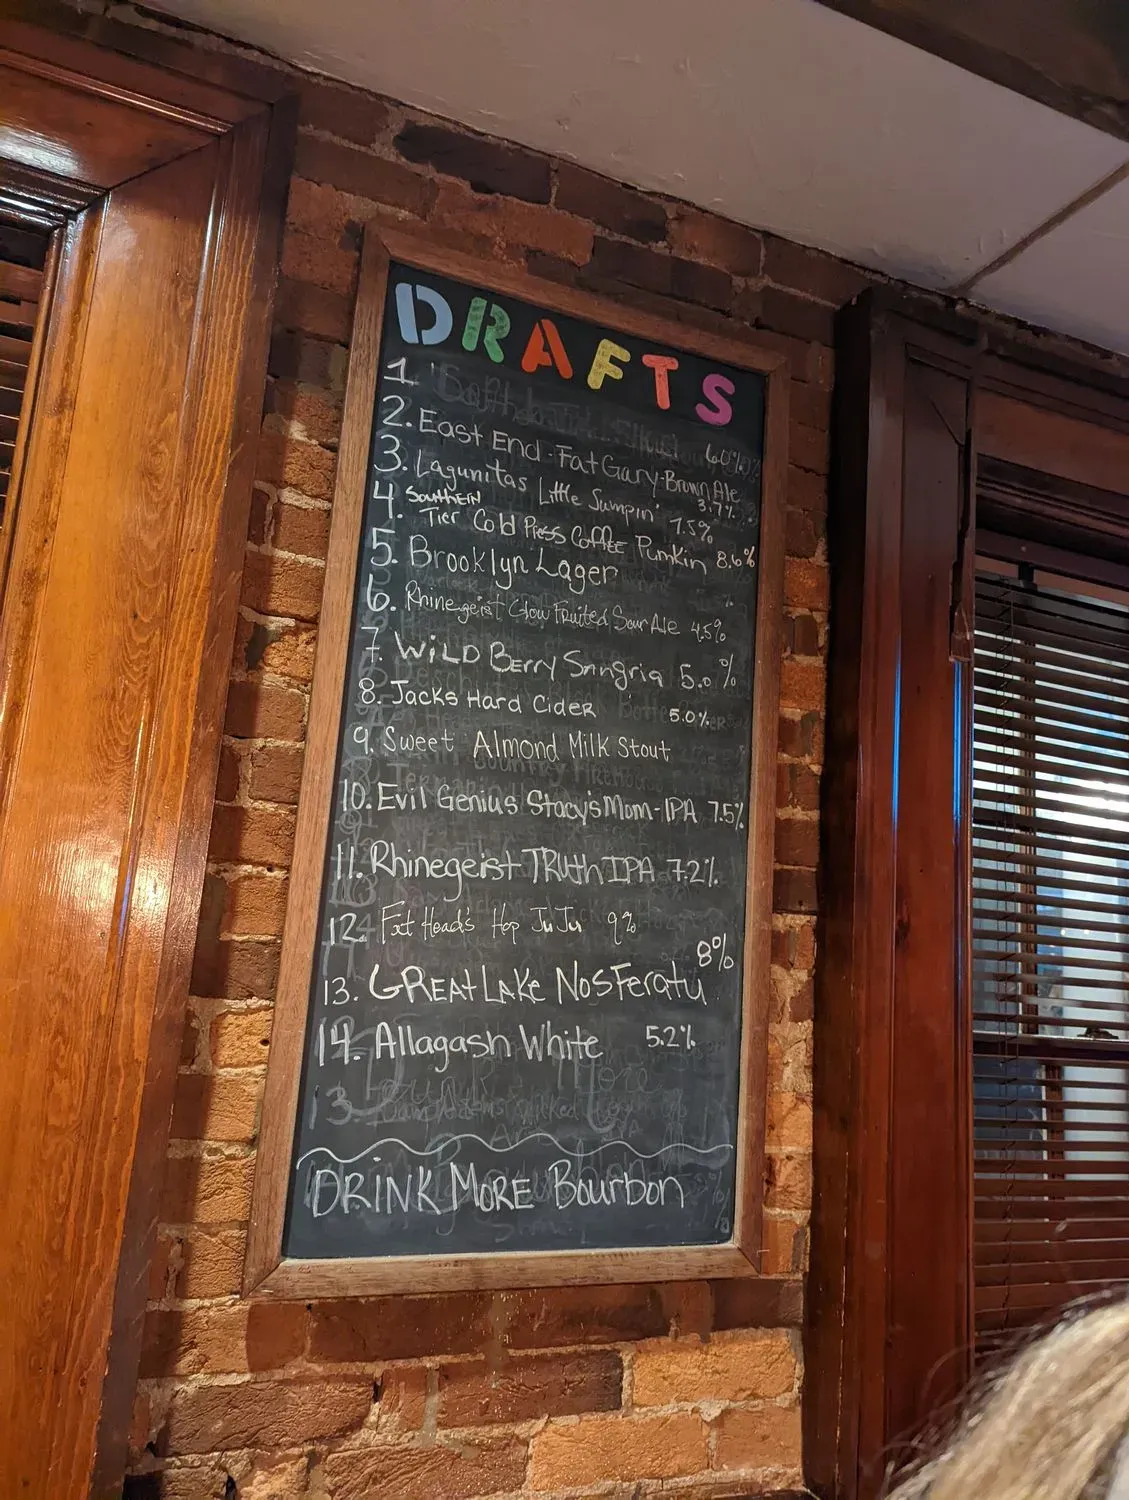 DRAFTS
1.
2. East End - Fat Gary - Brown Ale 3.7%
3. Lagunitas Little Sumpin' 7.5%
4. Southern Tier Cold Press Coffee Pumkin 8.6%
5. Brooklyn Lager
6. Rhinegeist Glow Fruited Sour Ale 4.5%
7. WiLD BERRY Sangria 5.0%
8. Jacks Hard Cider 5.0%
9. Sweet Almond Milk Stout
10. Evil Genius Stacy's Mom - IPA 7.5%
11. Rhinegeist TRUth IPA 7.2%
12. Fat Head's Hop JuJu 9%
13. GREAT LAKE NosFeratu 8%
14. Allagash White 5.2%
DRiNK MORE Bourbon